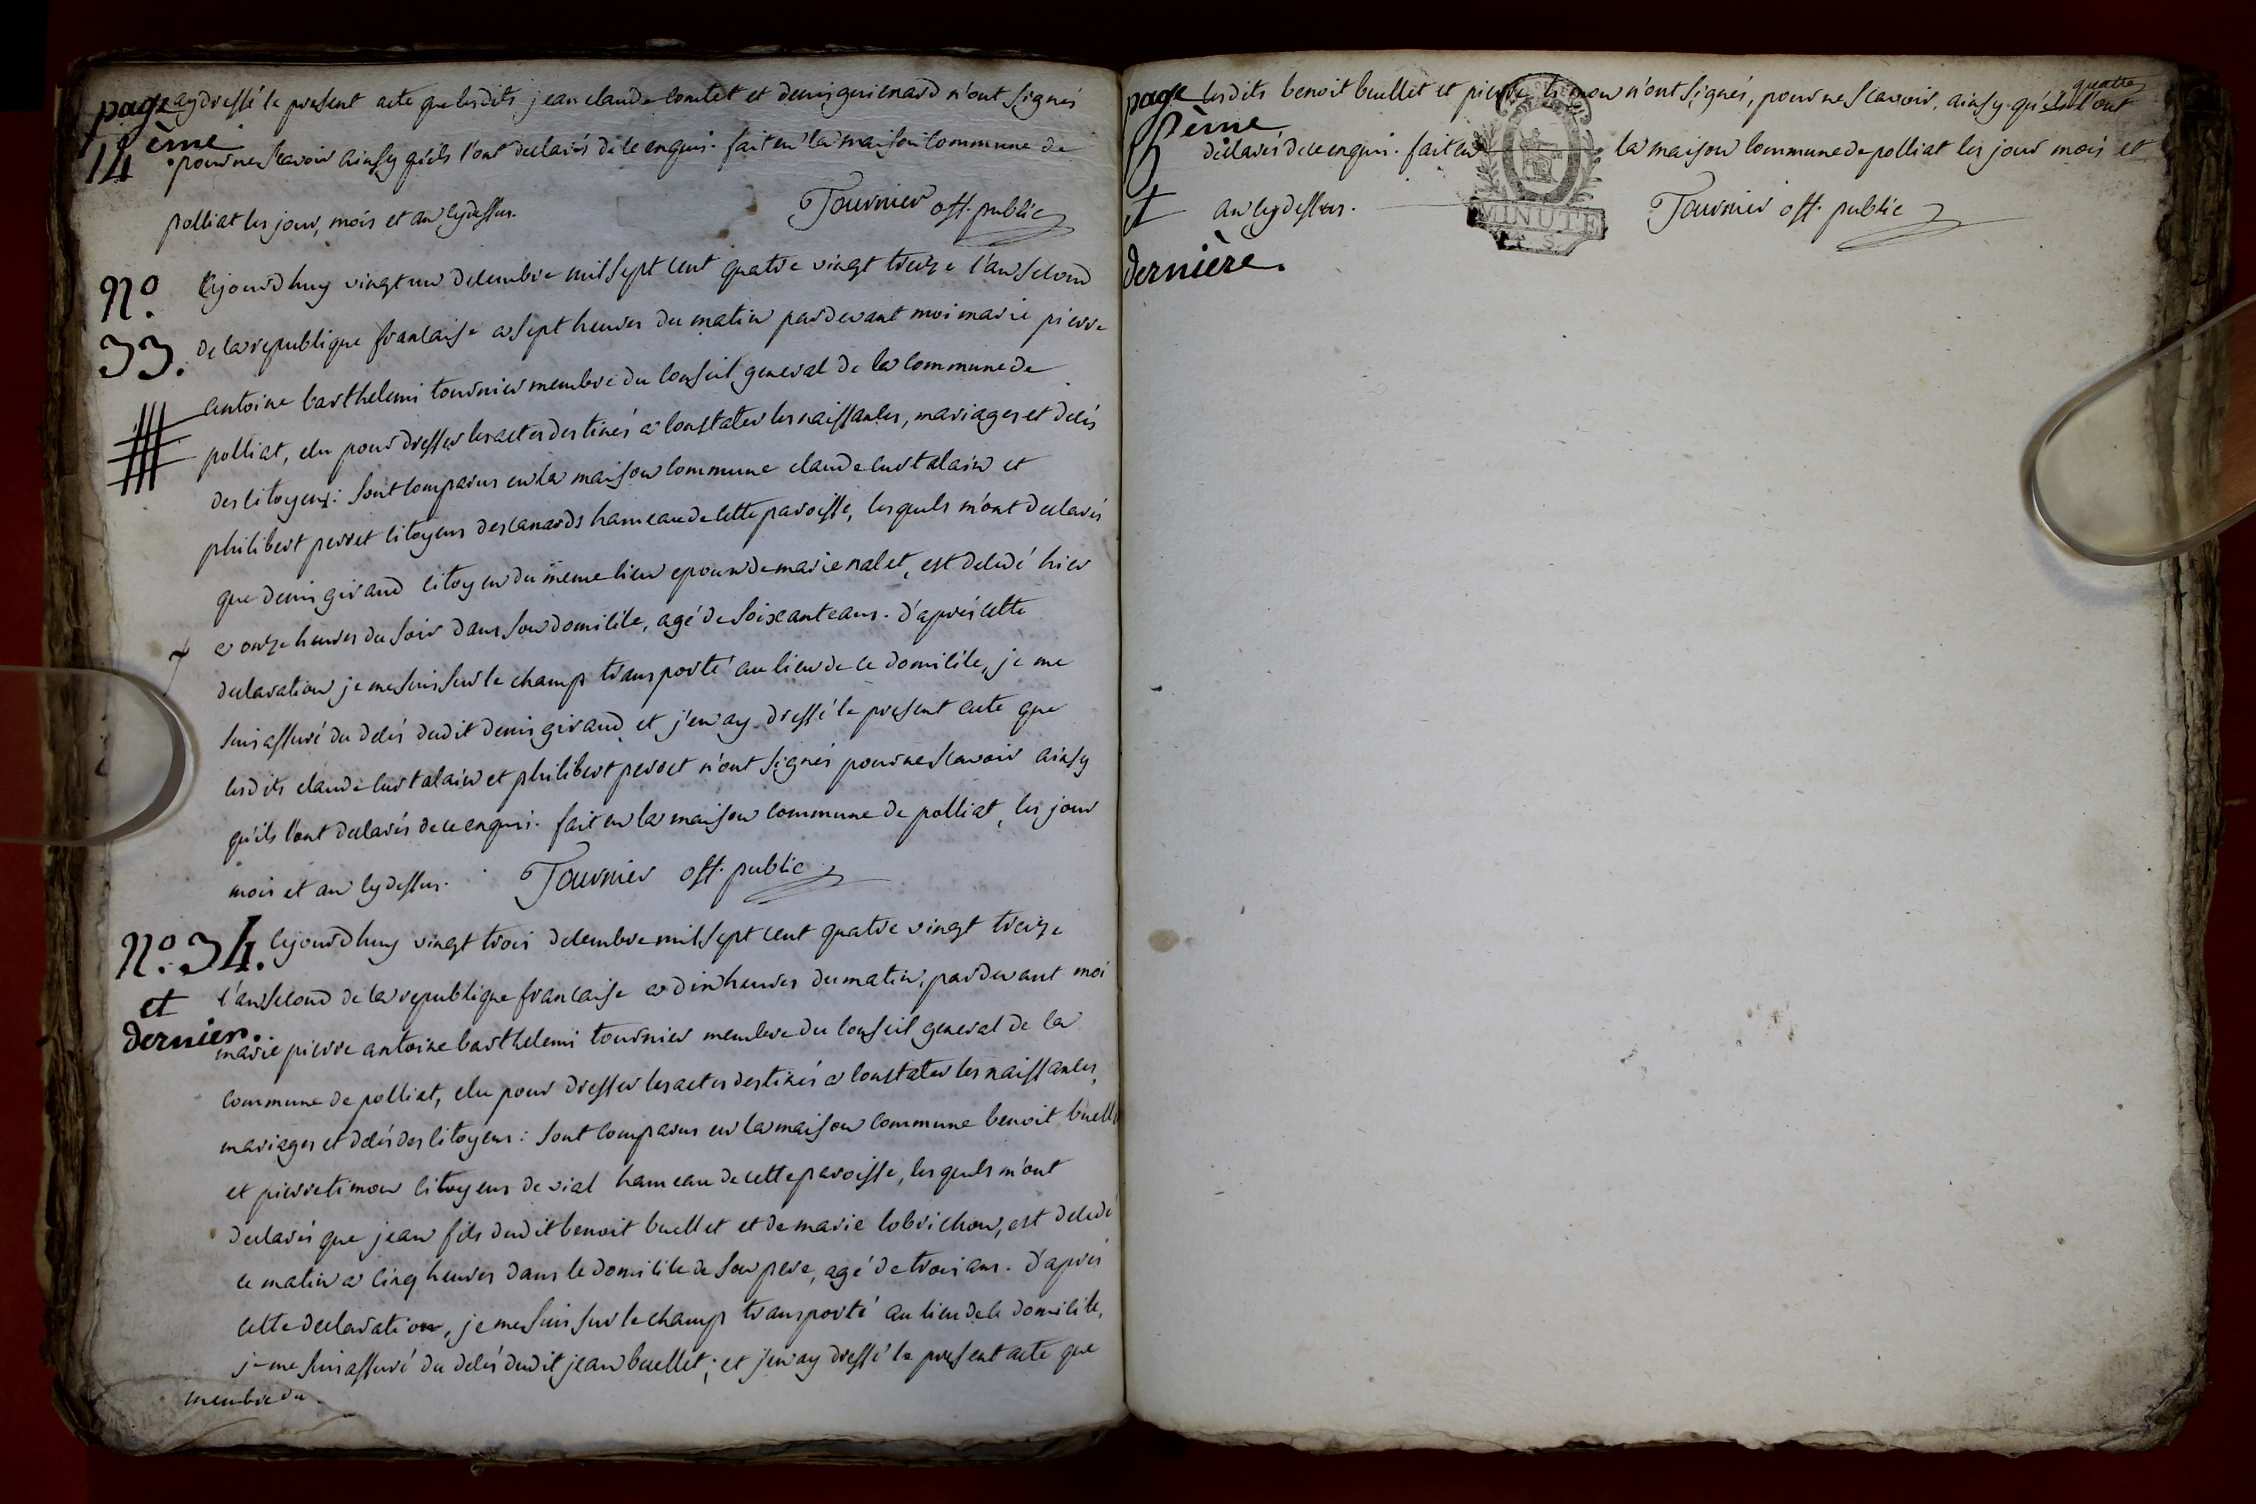 page
14 ème
ay dressé le present acte que lesdits jean claude comtet et denis guienard n'ont signés
pour ne scavoir ainsy qu'ils l'ont declarés de ce enquis. fait en la maison commune de
polliat les jour, mois et an cydessus. Tournier off. public
N.º
33.
Cejourdhuy vingt un decembre mil sept cent quatre vingt treize l'an second
de la republique francaise a sept heures du matin pardevant moi marie pierre
antoine barthelemi tournier membre du conseil general de la commune de
polliat, elu pour dresser les actes destinés a constater les naissances, mariages et decés
des citoyens: sont comparus en la maison commune claude curtalain et
philibert perret citoyens des canards hameau de cette paroisse, lesquels m'ont declarés
que denis giraud citoyen du même lieu epoux de marie nalet, est decedé hier
a onze heures du soir dans son domicile, agé de soixante ans. d'aprés cette
declaration je me suis sur le champ transporté au lieu de ce domicile, je me
suis assuré du decés dudit denis giraud et j'en ay dressé le present acte que
lesdits claude curtalain et philibert perret n'ont signés pour ne scavoir ainsy
qu'ils l'ont declarés de ce enquis. fait en la maison commune de polliat, les jour
mois et an cydessus. Tournier off. public
N.º 34.
et
dernier.
Cejourdhuy vingt trois decembre mil sept cent quatre vingt treize
l'an second de la republique francaise a dix heures du matin, pardevant moi
marie pierre antoine barthelemi tournier membre du conseil general de la
commune de polliat, elu pour dresser les actes destinés a constater les naissances,
mariages et decés des citoyens: sont comparus en la maison commune benoit buellet
et pierre timon citoyens de vial hameau de cette paroisse, lesquels m'ont
declarés que jean fils dudit benoit buellet et de marie cobrichon, est decedé
ce matin a cinq heures dans le domicile de son pere, agé de trois ans. d'aprés
cette declaration, je me suis sur le champ transporté au lieu de ce domicile,
je me suis assuré du decés dudit jean buellet; et j'en ay dressé le present acte que
membre du
page
et
dernière.
quatre
lesdits benoit buellet et pierre timon n'ont signés, pour ne scavoir, ainsy qu'ils l'ont
declarés de ce enquis. fait en la maison commune de polliat les jour mois et
an cydessus. Tournier off. public
MINUTE